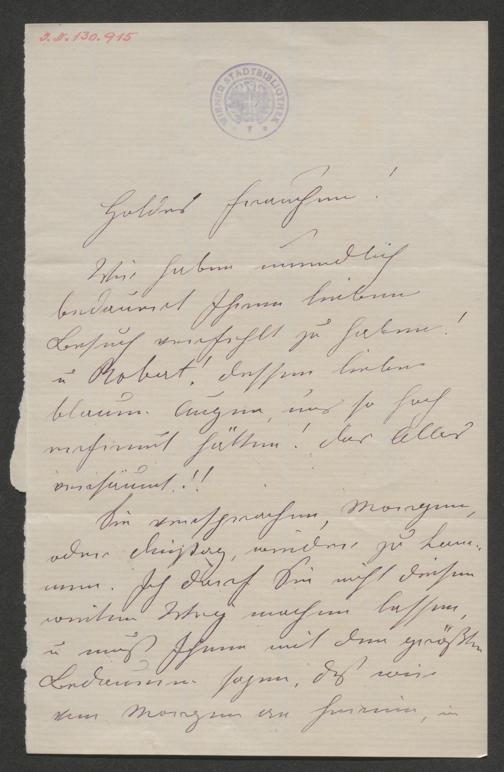 J.N. 130.915
WIENER STADTBIBLIOTHEK
Holdes Frauchen!
Wir haben unendlich
bedauert Ihren lieben
Besuch verfehlt zu haben!
u Robert! dessen liebe
blauen Augen, uns so hoch
erfreut hätten! das Alles
versäumt!!
Sie versprachen, Morgen,
oder Dinstag, wieder zu kom-
men. Ich darf Sie nicht diesen
weiten Weg machen lassen,
u muß Ihnen mit dem größten
Bedauern sagen, daß wir
von Morgen an